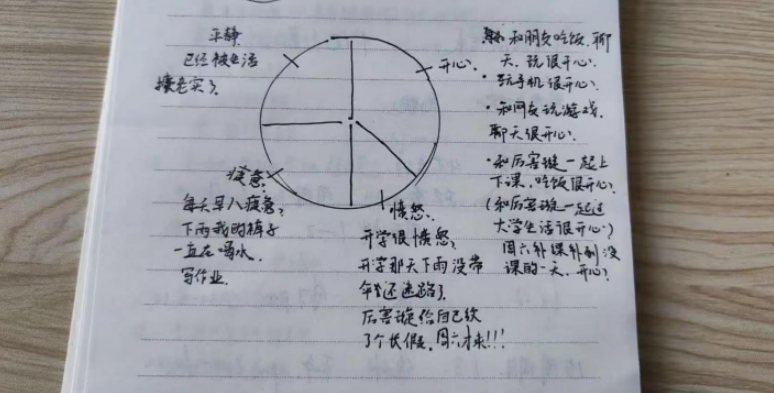 平静
已经被生活
捶老实了
开心
和朋友吃饭.聊
天.玩很开心.
·玩手机很开心.
·和网友玩游戏.
聊天很开心.
·和厉害璇一起上
下课.吃饭很开心.
(和厉害璇一起过
大学生活很开心.)
周六补课补到没
课的一天.开心.
疲惫
每天早八疲惫,
下雨我的裤子
一直在喝水.
写作业.
愤怒.
开学很愤怒,
开学那天下雨没带
伞还迷路了.
厉害璇给自己放
了个长假.周六才来!!!